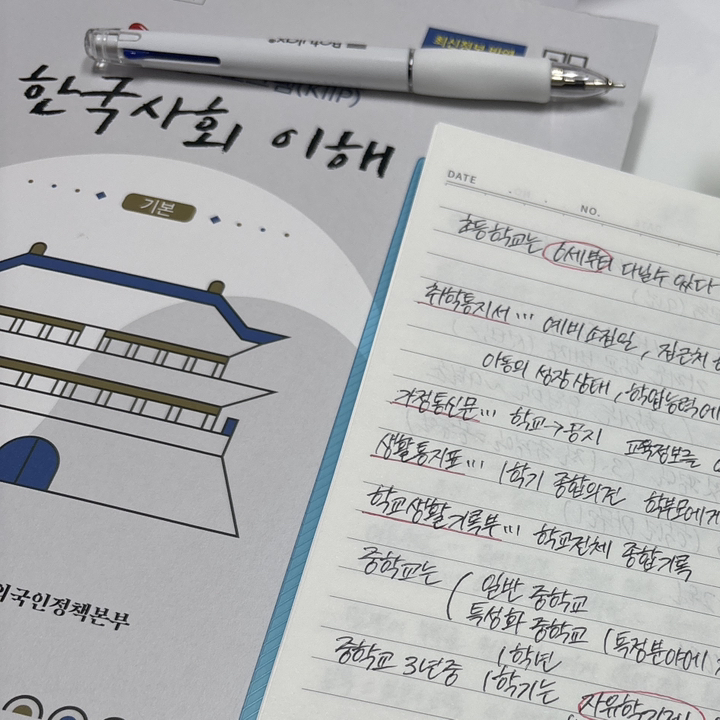 최신정보 반영
(KIIP)
한국사회 이해
기본
외국인정책본부
DATE
NO.
초등학교는 6세부터 다닐수 있다
취학통지서 ··· 예비소집일, 집근처
아동의 성장상태, 학업능력에
가정통신문 ··· 학교→공지 교육정보를
생활통지표 ··· 1학기 종합의견 학부모에게
학교생활기록부 ··· 학교전체 종합기록
중학교는 ( 일반 중학교
특성화 중학교 (특정분야에
중학교 3년중 1학년
1학기는 자유학기제